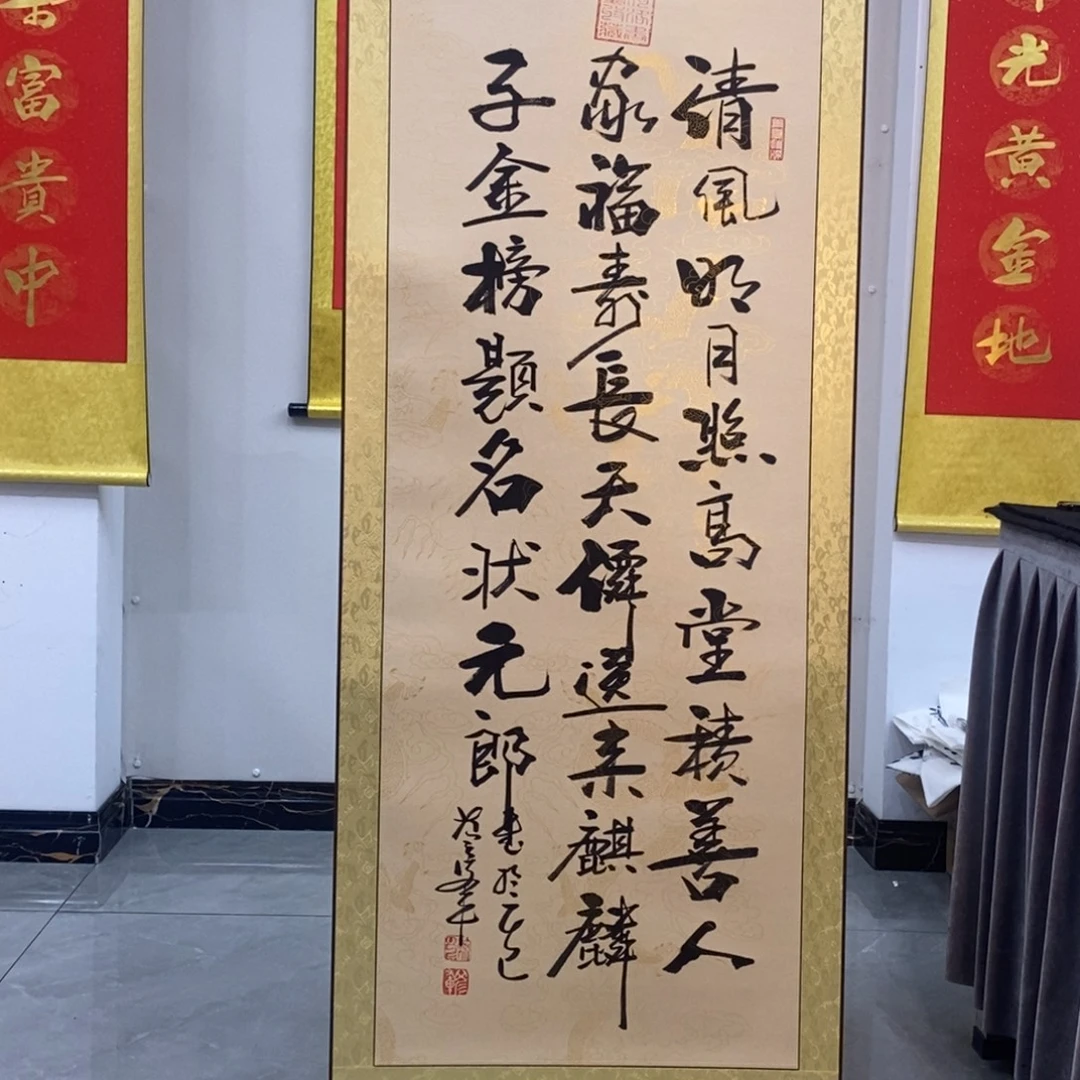 清風明月照高堂積善人
家福壽長天僊送来麒麟
子金榜題名状元郎
書於乙巳
光黄金地
富貴中